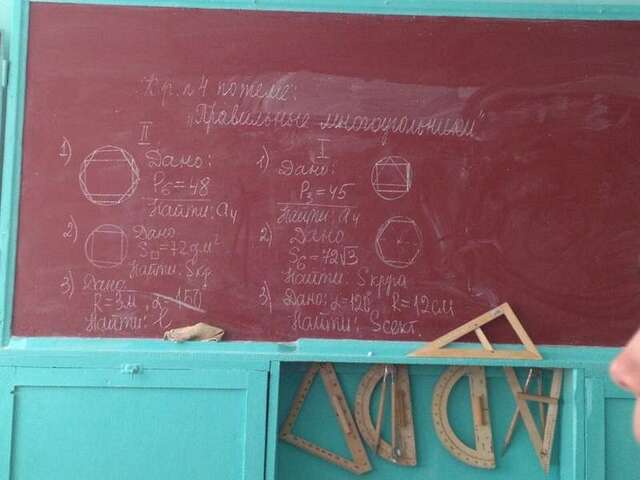 К.р. №4 по теме:
"Правильные многоугольники"
II
1) Дано:
P₆=48
Найти: a₄
2) Дано
S□=72дм²
Найти: Sкр
3) Дано
R=3м, α=150
Найти: l
I
1) Дано:
P₃=45
Найти: a₄
2) Дано
S₆=72√3
Найти: Sкруга
3) Дано: α=120 R=12см
Найти: Sсект.